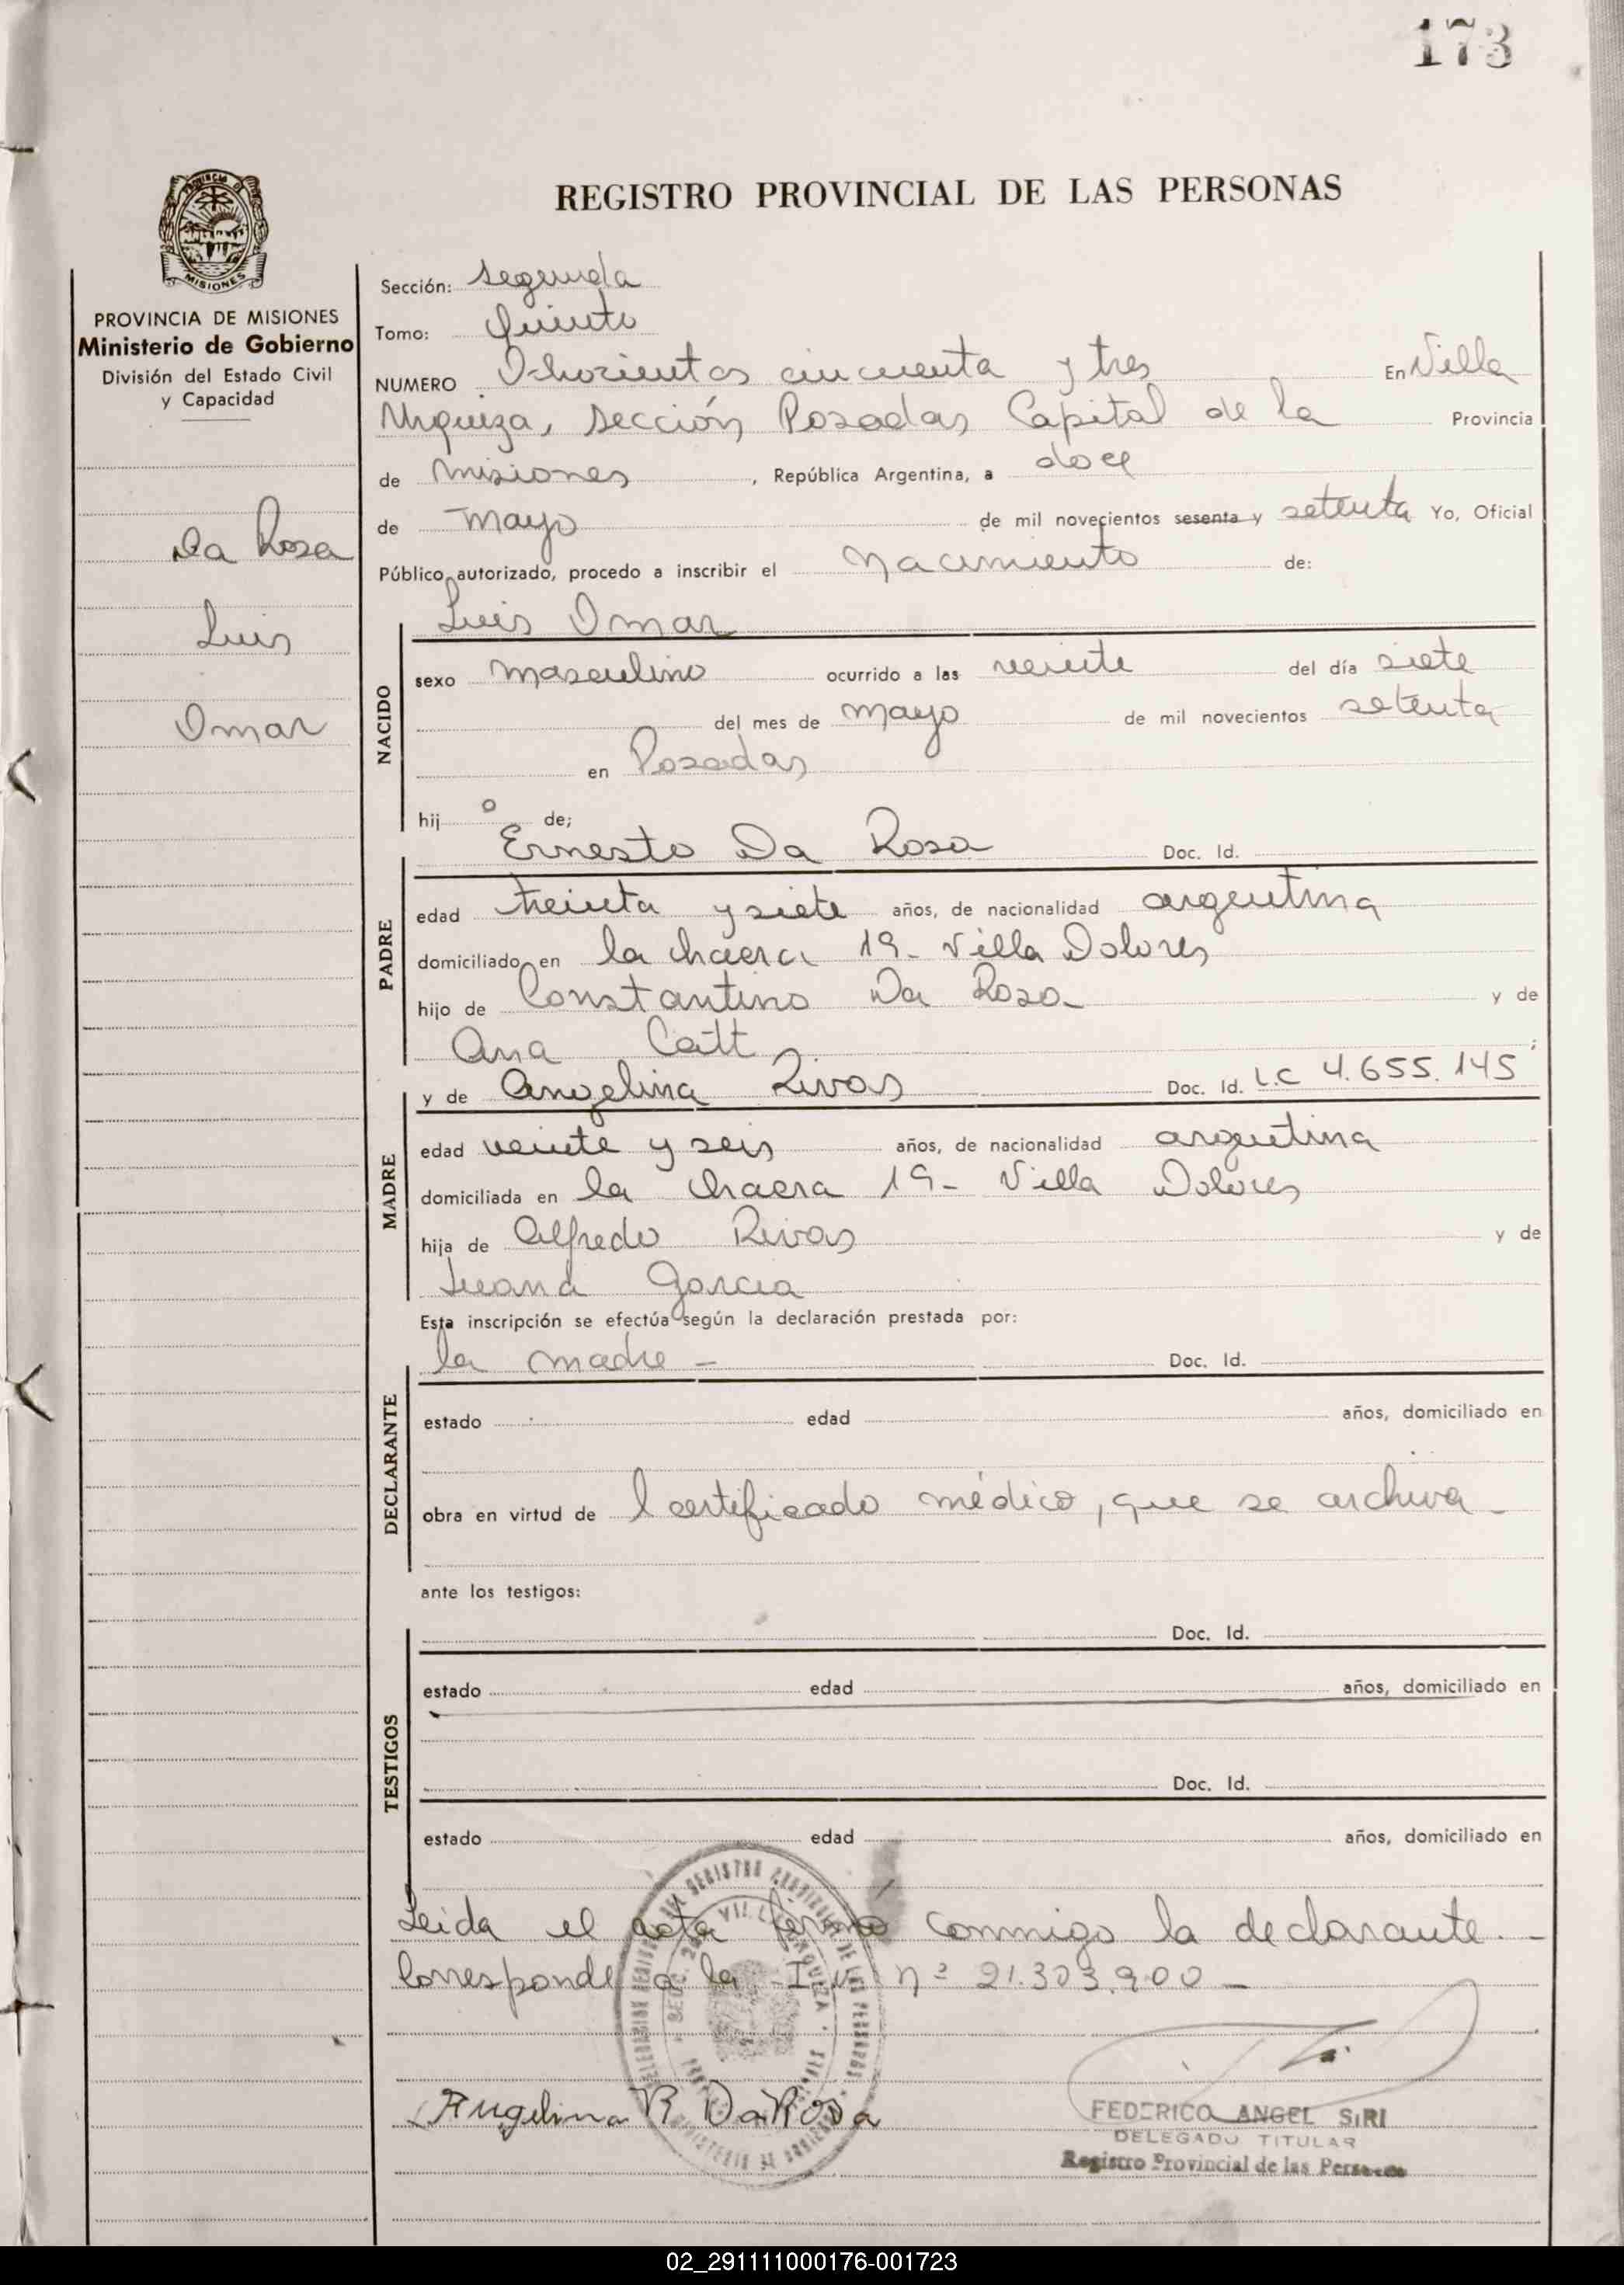 173
REGISTRO PROVINCIAL DE LAS PERSONAS
MISIONES
PROVINCIA DE MISIONES
Ministerio de Gobierno
División del Estado Civil
y Capacidad
Da Rosa
Luis
Omar
Sección: Segunda
Tomo: Quinto
NUMERO Ochocientos cincuenta y tres En Villa
Urquiza, Sección Posadas Capital de la Provincia
de Misiones, República Argentina, a doce
de Mayo de mil novecientos sesenta y setenta Yo, Oficial
Público autorizado, procedo a inscribir el Nacimiento de:
NACIDO
Luis Omar
sexo Masculino ocurrido a las veinte del día siete
del mes de Mayo de mil novecientos setenta
en Posadas
hijo de;
PADRE
Ernesto Da Rosa Doc. Id.
edad treinta y siete años, de nacionalidad argentina
domiciliado en la chacra 19- Villa Dolores
hijo de Constantino Da Rosa y de
Ana Catt ;
MADRE
y de Angelina Rivas Doc. Id. L.C 4.655.145
edad veinte y seis años, de nacionalidad argentina
domiciliada en la chacra 19- Villa Dolores
hija de Alfredo Rivas y de
Juana Garcia
Esta inscripción se efectúa según la declaración prestada por:
DECLARANTE
la madre - Doc. Id.
estado edad años, domiciliado en
obra en virtud de l certificado médico, que se archiva-
ante los testigos:
TESTIGOS
Doc. Id.
estado edad años, domiciliado en
Doc. Id.
estado edad años, domiciliado en
Leida el acta firma conmigo la declarante.-
Corresponde a la nº 21.303.900-
Angelina R Da Rosa
FEDERICO ANGEL SIRI
DELEGADO TITULAR
Registro Provincial de las Personas
02_291111000176-001723